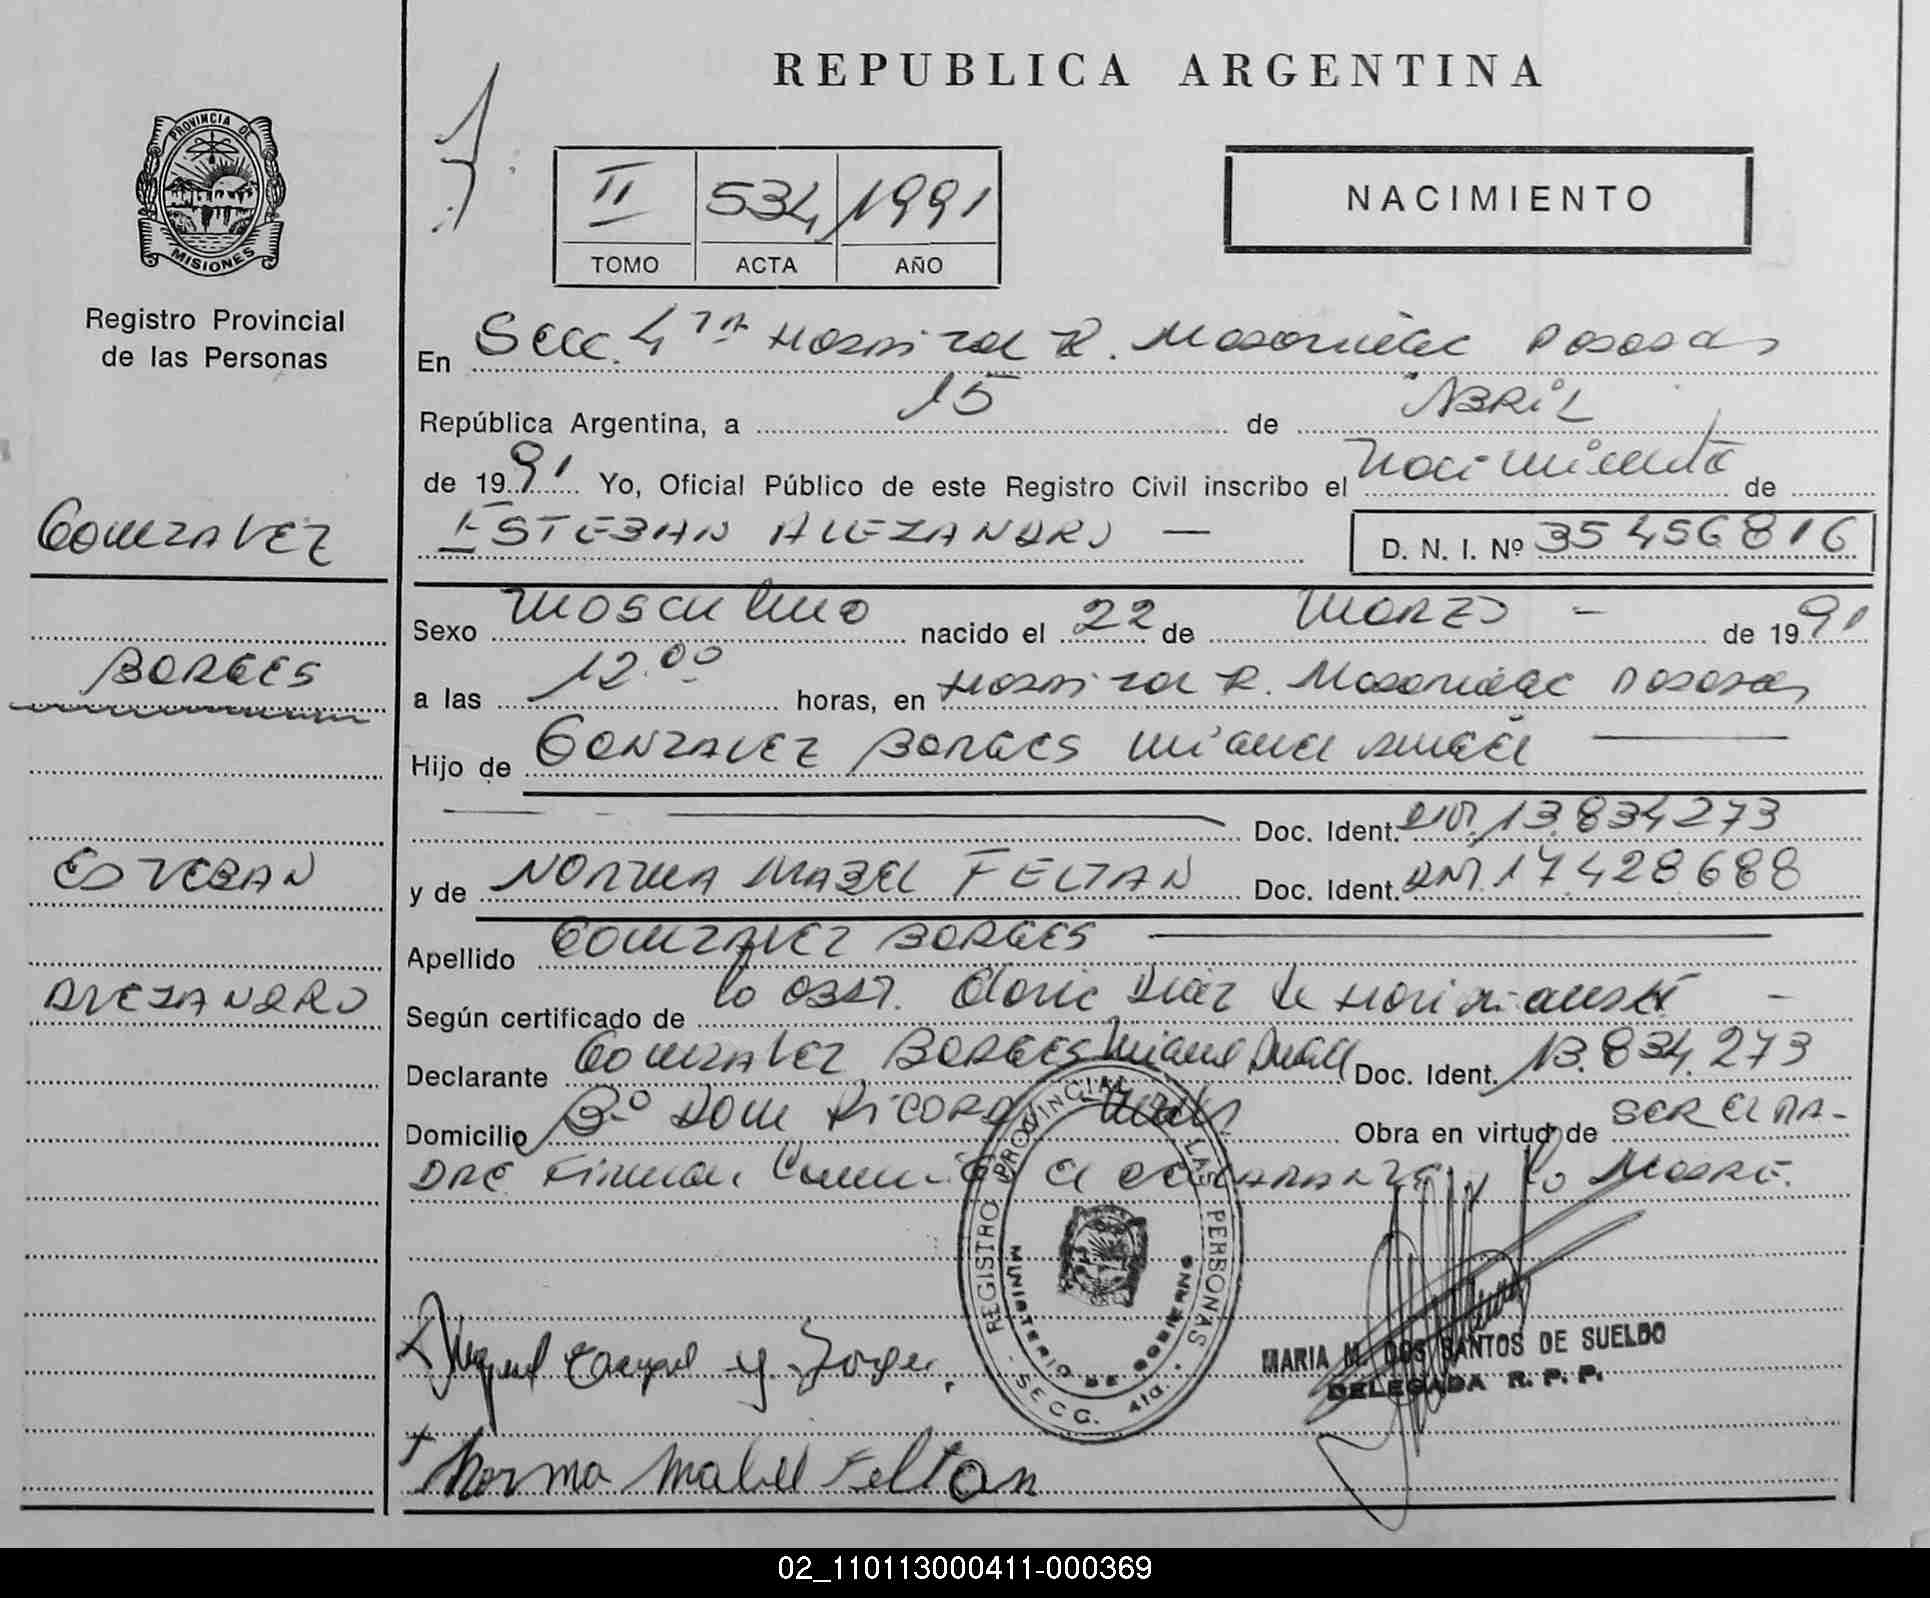 REPUBLICA ARGENTINA
PROVINCIA DE
MISIONES
Registro Provincial
de las Personas
II 534 1991
TOMO ACTA AÑO
NACIMIENTO
En Secc. 4ta Hospital R. Madariaga Posadas
República Argentina, a 15 de ABRIL
de 1991 Yo, Oficial Público de este Registro Civil inscribo el Nacimiento de
ESTEBAN ALEJANDRO — D. N. I. Nº 35456816
GONZALEZ
BORGES
ESTEBAN
ALEJANDRO
Sexo Masculino nacido el 22 de MARZO — de 1991
a las 12.00 horas, en Hospital R. Madariaga Posadas
Hijo de GONZALEZ BORGES Miguel Angel
Doc. Ident. DNI. 13.834273
y de NORMA MABEL FELTAN Doc. Ident. DNI. 17.428.688
Apellido GONZALEZ BORGES
Según certificado de la Obst. Diaz de
Declarante GONZALEZ BORGES Miguel Angel Doc. Ident. 13.834.273
Domicilio Bº Don Ricardo Obra en virtud de SER EL PA-
DRE. Firman el DECLARANTE y la MADRE.
REGISTRO PROVINCIAL LAS PERSONAS
MINISTERIO DE GOBIERNO
SECC. 4ta.
MARIA M. DOS SANTOS DE SUELDO
DELEGADA R. P. P.
Norma Mabel Feltan
02_110113000411-000369